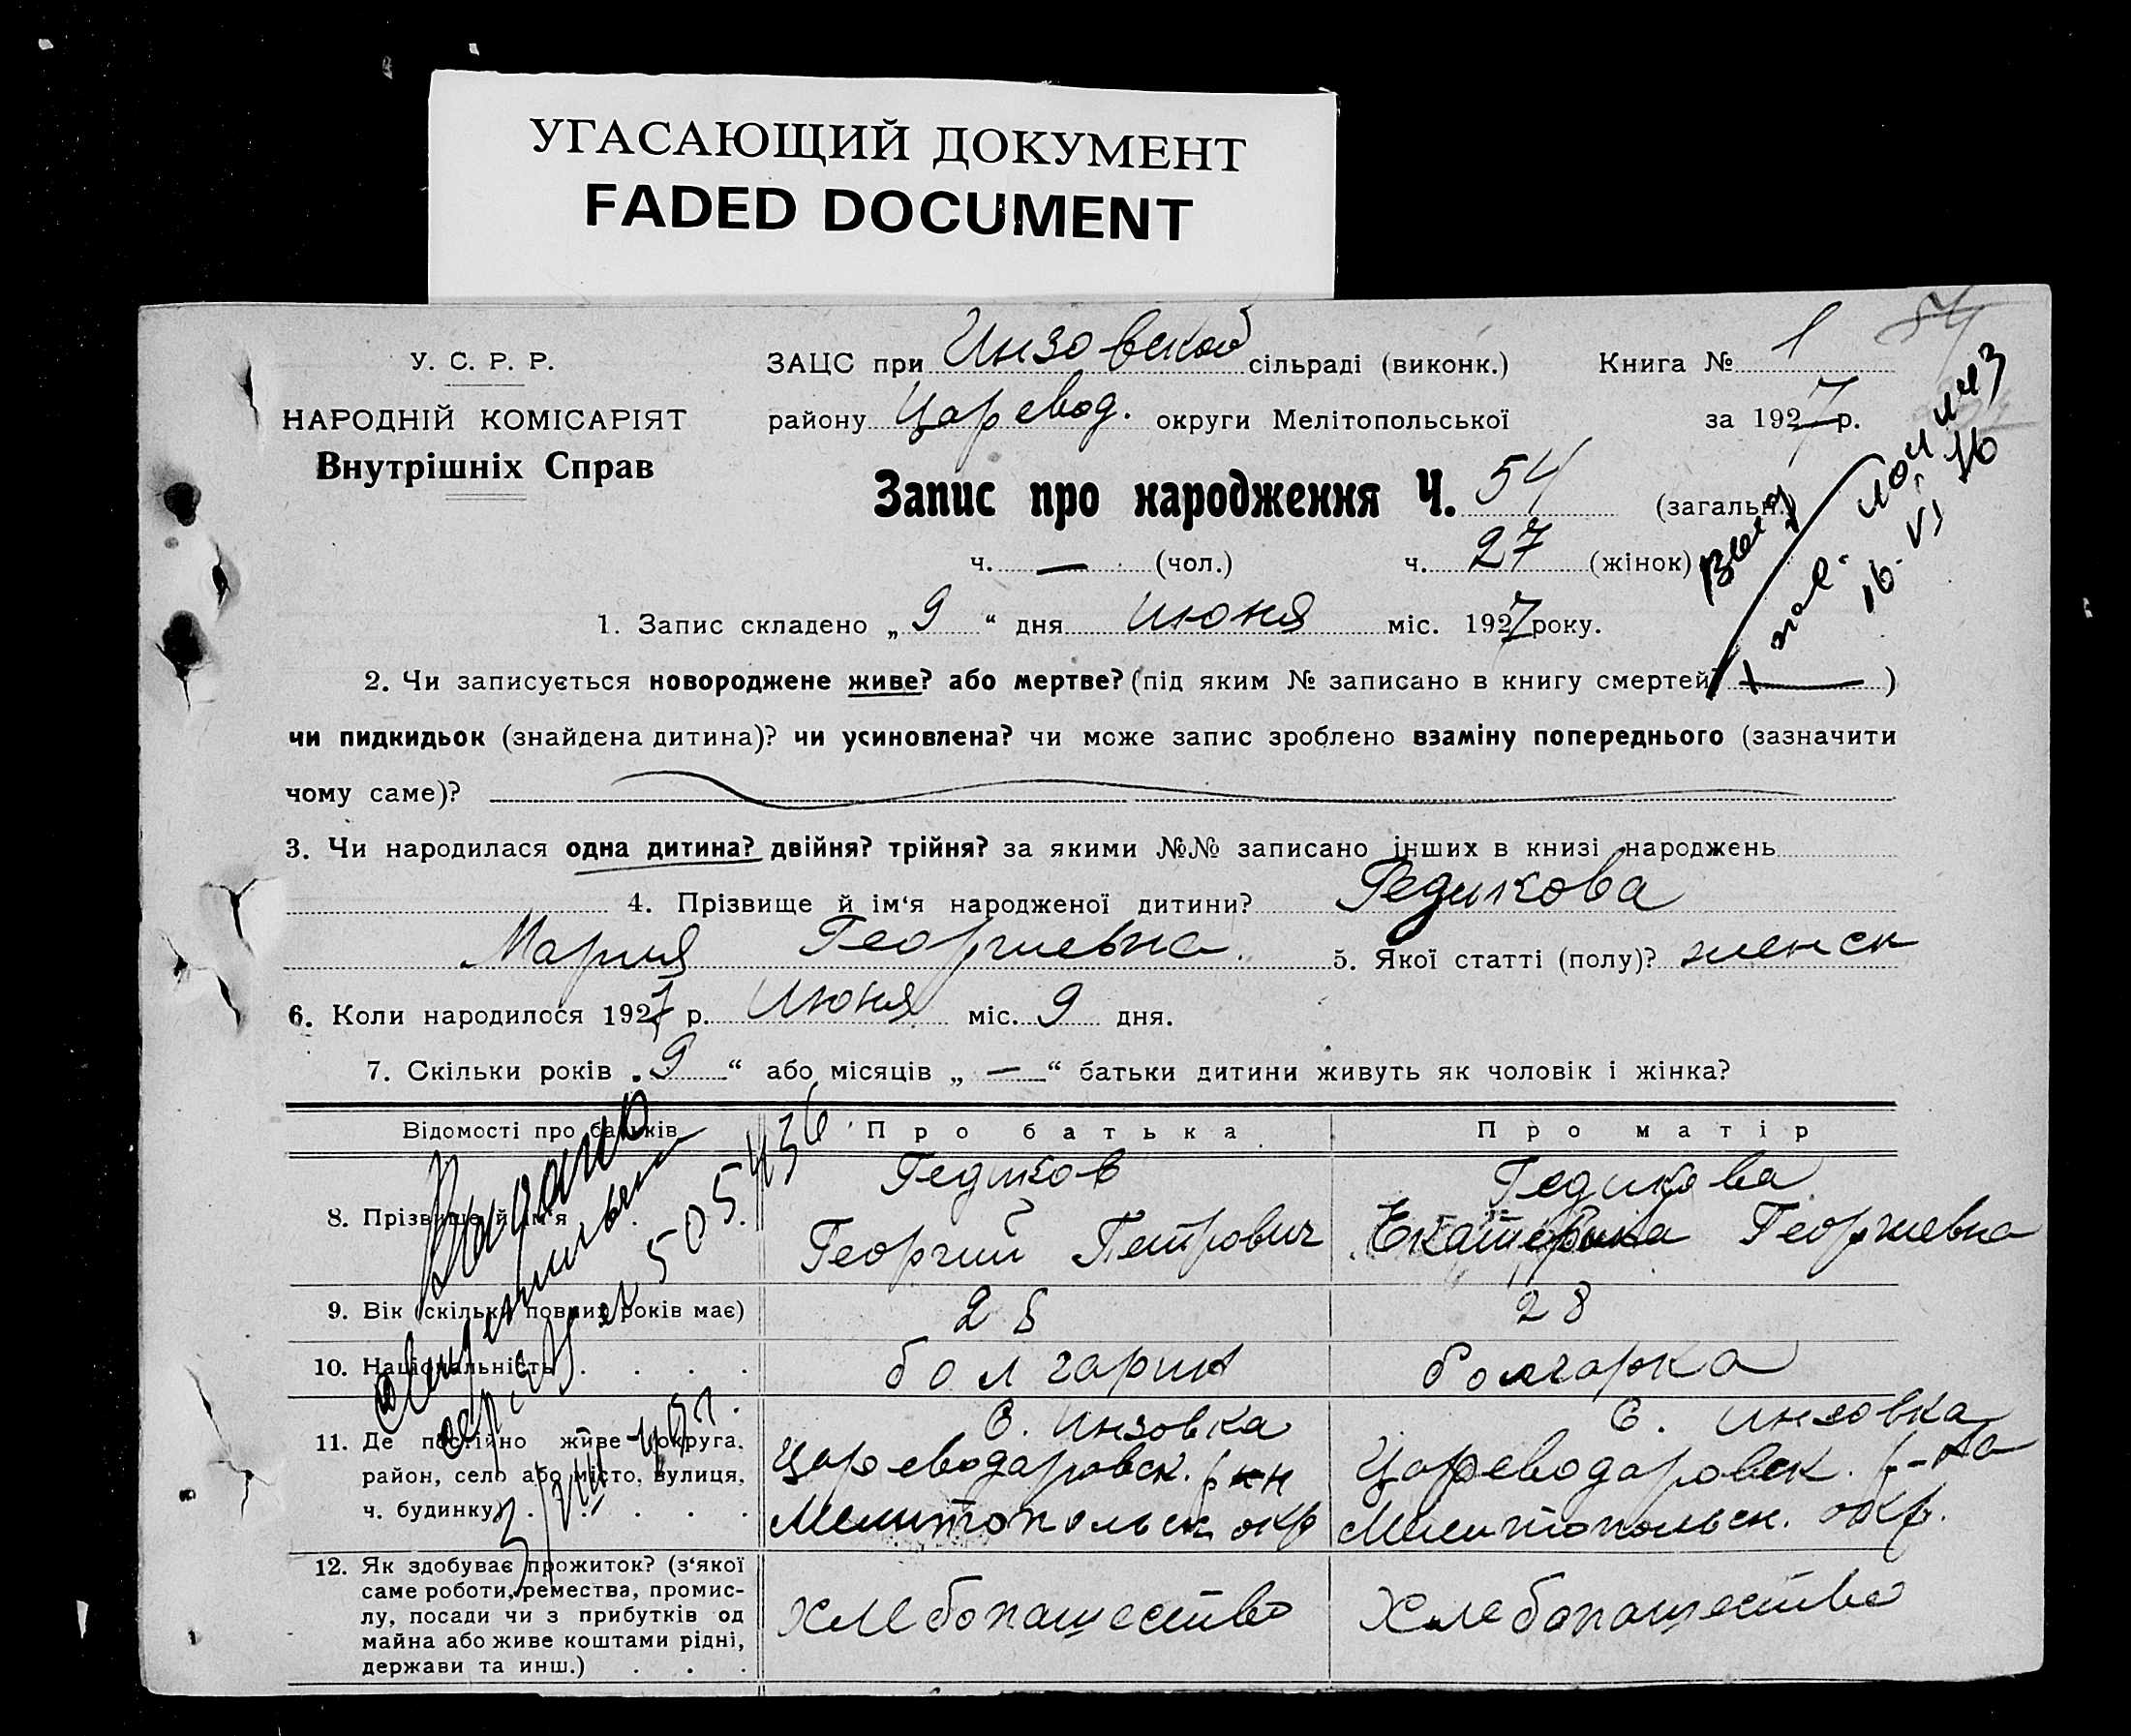 УГАСАЮЩИЙ ДОКУМЕНТ
FADED DOCUMENT
У. С. Р. Р.
НАРОДНІЙ КОМІСАРІЯТ
Внутрішніх Справ
ЗАЦС при Инзовской сільраді (виконк.) Книга № 1
району Царевод. округи Мелітопольської за 1927 р.
Запис про народження Ч. 54 (загальн.)
ч. — (чол.) ч. 27 (жінок)
1. Запис складено „ 9 “ дня июня міс. 1927 року.
2. Чи записується новороджене живе? або мертве? (під яким № записано в книгу смертей — )
чи пидкидьок (знайдена дитина)? чи усиновлена? чи може запис зроблено взаміну попереднього (зазначити
чому саме)?
3. Чи народилася одна дитина? двійня? трійня? за якими №№ записано інших в книзі народжень
4. Прізвище й ім‘я народженої дитини? Гедикова
Мария Георгиевна. 5. Якої статті (полу)? женск
6. Коли народилося 1927 р. Июня міс. 9 дня.
7. Скільки років „ 9 “ або місяців „ — “ батьки дитини живуть як чоловік і жінка?
Відомості про батьків Про батька Про матір
8. Прізвище й ім‘я
Гедиков
Георгий Петрович
Гедикова
Екатерина Георгиевна
9. Вік (скільки повних років має) 28 28
10. Національність болгарин болгарка
11. Де постійно живе (округа,
район, село або місто, вулиця,
ч. будинку)
С. Инзовка
Цареводаровск. ркн
Мелитопольск окр
С. Инзовка
Цареводаровск. р-на
Мелитопольск. окр.
12. Як здобуває прожиток? (з‘якої
саме роботи, ремества, промис-
лу, посади чи з прибутків од
майна або живе коштами рідні,
держави та инш.)
хлебопашество
Хлебопашество
Выдано
505436